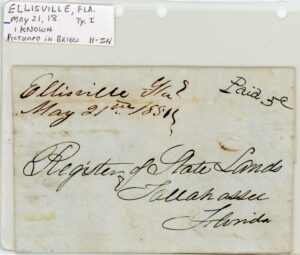 ELLISVILLE, FLA.
MAY 21, 18 Ty. I
1 KNOWN
PICTURED IN BRIGGS H-IH
Ellisville Fla
May 21st 1851
Paid 5c
Register of State Lands
Tallahassee
Florida